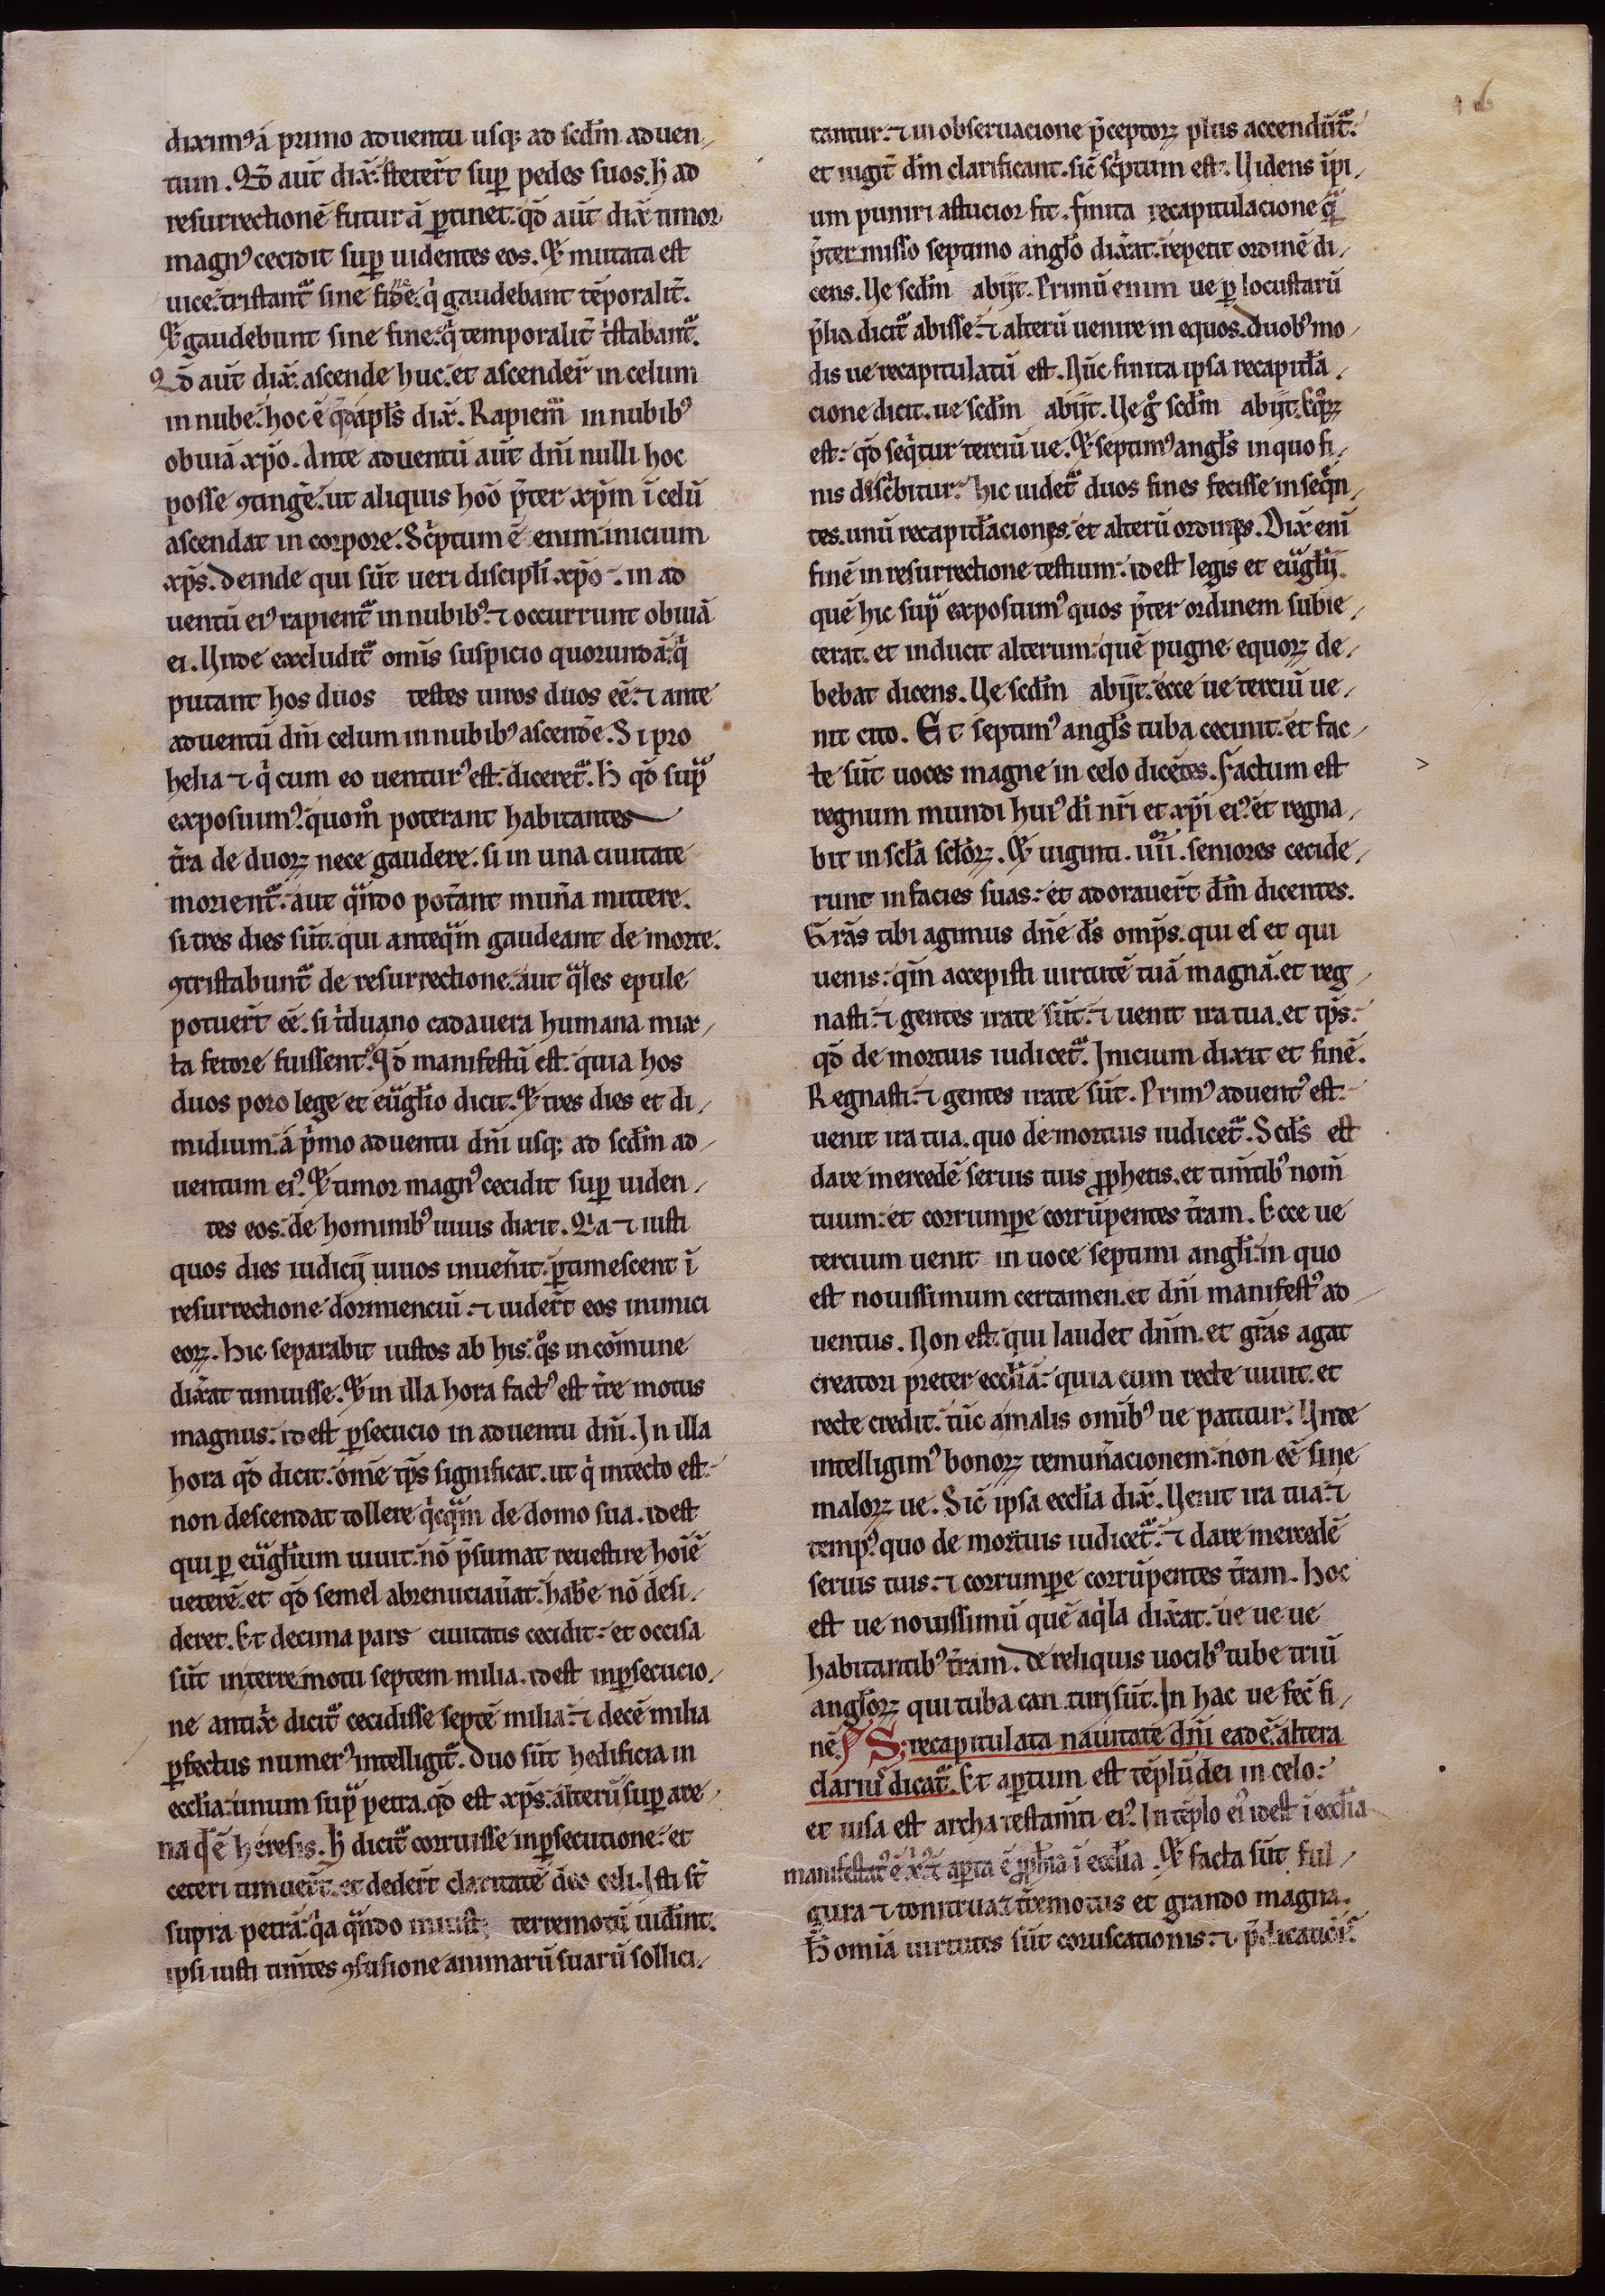 16
diximꝰ á primo aduentu usq; ad scd̄m aduen
tum. Qđ aut̄ dix̄. stetert̄ sup pedes suos. h̄ ad
resurrectionē futurā ꝑtinet. qđ aut̄ dix̄ timor
magnꝰ cecidit sup uidentes eos. Et mutata est
uice. tristant̄ sine fine. qͥ gaudebant tēporalit̄.
Et gaudebunt sine fine. qͥ temporalit̄ tͥstabant̄.
Qđ aut̄ dix̄. ascende huc. et ascender̄ in celum
in nube. hoc ē qđ apl̄s dix̄. Rapiem̄ in nubibꝰ
obuiā xp̄o. Ante aduentū aut̄ dn̄i nulli hoc
posse ꝯtinge. ut aliquis hōō p̄ter xp̄m ī celū
ascendat in corpore. Scͥptum ē enim. inicium
xp̄s. deinde qui sūt ueri discipl̄i xp̄o. in ad
uentū eiꝰ rapient̄ in nubibꝰ. ⁊ occurrunt obuiā
ei. Unde excludit̄ omīs suspicio quorundā. qͥ
putant hos duos testes uiros duos eē. ⁊ ante
aduentū dn̄i celum in nubibꝰ ascende. Si pro
helia ⁊ qͥ cum eo uenturꝰ est. diceret̄. h̄ qđ supͣ
exposuimꝰ. quom̊ poterant habitantes
tr̄a de duoꝝ nece gaudere. si in una ciuitate
morient̄. aut qͣndo pot̄ant mun̄a mittere.
si tres dies sūt. qui anteqͣm gaudeant de morte.
ꝯtristabunt̄ de resurrectione. aut qͣles epule
potuert̄ eē. si tͥduano cadauera humana mix
ta fetore fuissent. Qđ manifestū est. quia hos
duos poro lege et euͣgl̄io dicit. Et tres dies et di
midium. á pͥmo aduentu dn̄i usq; ad scd̄m ad
uentum eiꝰ. Et timor magnꝰ cecidit sup uiden
tes eos. de hominibꝰ uiuis dixit. Qa ⁊ iusti
quos dies iudicij uiuos inuen̄it. ꝑtimescent ī
resurrectione dormienciū. ⁊ uidert̄ eos inimici
eoꝝ. Hic separabit iustos ab his. qͦs in com̄une
dix̄at timuisse. Et in illa hora factꝰ est tr̄e motus
magnus. id est ꝑsecucio in aduentu dn̄i. In illa
hora qđ dicit. om̄e tp̄s significat. ut qͥ in tecto est.
non descendat tollere qͥcqͣm de domo sua. id est
qui ꝑ euͣgl̄ium uiuit. nō p̄sumat reuestire hoīē
ueterē. et qđ semel abrenuciau̾at. hab̄e nō desi
deret. Et decima pars ciuitatis cecidit. et occisa
sūt in terre motu septem milia. id est in ꝑsecucio
ne antix̄ dicit̄ cecidisse septē milia. ⁊ decē milia
ꝑfectus numerꝰ intelligit̄. Duo sūt hedificia in
eccl̄ia. unum supͣ petra. qđ est xp̄s. alterū sup are
na qđ ē heresis. h̄ dicit̄ corruisse in ꝑsecutione. et
ceteri timuert̄. et dedert̄ claritatē deo celi. Isti st̄
supra petrā. qͥa qͣndo terremotū uid̄int.
ipsi iusti tim̄tes ꝯfusione animarū suarū sollici
tantur. ⁊ in obseruacione p̄ceptoꝝ plus accendūt̄.
et iugit̄ dm̄ clarificant. sic̄ scͥptum est. Uidens īpi
um puniri astucior fit. finita recapitulacione qͣ
p̄termisso septimo angl̄o dix̄at. repetit ordinē di
cens. Ue scd̄m abijt. Primū enim ue ꝑ locustarū
p̄lia dicit̄ abisse. ⁊ alterū uenire in equos. Duobꝰ mo
dis ue recapitulatū est. Nūc finita ipsa recapitl̄a
cione dicit. ue scd̄m abijt. Ue gͦ scd̄m abijt. Eqͦꝝ
est. qđ seqͥtur terciū ue. Et septimꝰ angl̄s in quo fi
nis discͥbitur. hic uidet̄ duos fines fecisse in seqͣn
tes. unū recapitl̄acionis. et alterū ordinis. Dix̄ enī
finē in resurrectione testium. id est legis et euͣgl̄ij.
quē hic supͣ exposuimꝰ quos p̄ter ordinem subie
cerat. et inducit alterum. quē pugne equoꝝ de
bebat dicens. Ue scd̄m abijt. ecce ue terciū ue
nit cito. Et septimꝰ angl̄s tuba cecinit. et fac
te sūt uoces magne in celo dicētes. Factum est
regnum mundi huiꝰ dī nr̄i et xp̄i eiꝰ. et regna
bit in scl̄a scl̄oꝝ. Et uiginti. uͦıı̄ı. seniores cecide
runt in facies suas. et adorauert̄ dm̄ dicentes.
Gr̄as tibi agimus dn̄e ds̄ omp̄s. qui es et qui
uenis. qm̄ accepisti uirtutē tuā magnā. et reg
nasti. ⁊ gentes irate sūt. ⁊ uenit ira tua. et tp̄s.
qđ de mortuis iudicet̄. Inicium dixit et finē.
Regnasti. ⁊ gentes irate sūt. Primꝰ aduentꝰ est.
uenit ira tua. quo de mortuis iudicet̄. Scd̄s est
dare mercedē seruis tuis ꝓphetis. et tim̄tibꝰ nom̄
tuum. et corrumpe corrūpentes tr̄am. Ecce ue
tercium uenit in uoce septimi angl̄i. in quo
est nouissimum certamen. et dn̄i manifestꝰ ad
uentus. Non est. qui laudet dn̄m. et gr̄as agat
creatori preter eccl̄iā. quia cum recte uiuit. et
recte credit. tūc a malis omībꝰ ue patitur. Unde
intelligimꝰ bonoꝝ remun̄acionem. non eē sine
maloꝝ ue. Sic̄ ipsa eccl̄ia dix̄. Uenit ira tua. ⁊
tempꝰ quo de mortuis iudicet̄. ⁊ dare mercedē
seruis tuis. ⁊ corrumpe corrūpentes tr̄am. Hoc
est ue nouissimū quē aqͥla dix̄at. ue ue ue
habitantibꝰ tr̄am. de reliquis uocibꝰ tube triū
angl̄oꝝ qui tuba can turi sūt. In hac ue fec̄ fi
nē. S; recapitulata natiuitate dn̄i eadē. altera
clariꝰ dicat̄. Et aꝑtum est tēplū dei in celo.
et uisa est archa testam̄ti eiꝰ. In tēplo eiꝰ id est ī eccl̄ia
manifestatꝰ ē aꝑta ē ꝓph̄ia ī eccl̄ia. Et facta sūt ful
gura ⁊ tonitrua. ⁊ tr̄emotus et grando magna.
H̄ omīa uirtutes sūt coruscationis. ⁊ p̄dicatiōī.